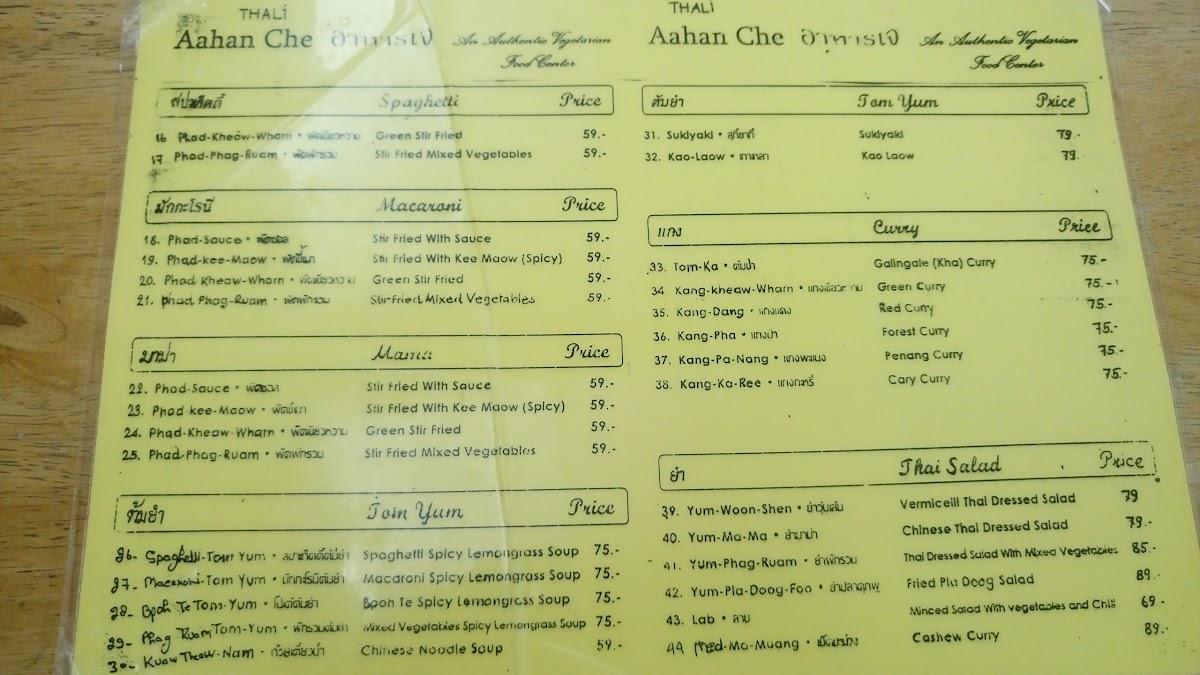 THALi
Aahan Che อาหารเจ An Authentic Vegetarian
Food Center
สปาเก็ตตี้ Spaghetti Price
16 Phad-Kheow-Wharn • ผัดเขียวหวาน Green Stir Fried 59.-
17. Phad-Phag-Ruam • ผัดผักรวม Stir Fried Mixed Vegetables 59.-
มักกะโรนี Macaroni Price
18. Phad-Sauce • ผัดซอส Stir Fried With Sauce 59.-
19. Phad-kee-Maow • ผัดขี้เมา Stir Fried With Kee Maow (Spicy) 59.-
20. Phad Kheaw-Wharn • ผัดเขียวหวาน Green Stir Fried 59.-
21. Phad Phag-Ruam • ผัดผักรวม Stir-Fried Mixed Vegetables 59.-
มาม่า Mama Price
22. Phad-Sauce • ผัดซอส Stir Fried With Sauce 59.-
23. Phad kee-Maow • ผัดขี้เมา Stir Fried With Kee Maow (Spicy) 59.-
24. Phad-Kheaw-Wharn • ผัดเขียวหวาน Green Stir Fried 59.-
25. Phad-Phag-Ruam • ผัดผักรวม Stir Fried Mixed Vegetables 59.-
ต้มยำ Tom Yum Price
26- Spaghetti-Tom Yum • สปาเก็ตตี้ต้มยำ Spaghetti Spicy Lemongrass Soup 75.-
27- Macaroni-Tom Yum • มักกะโรนีต้มยำ Macaroni Spicy Lemongrass Soup 75.-
28- Bpoh Te Tom-Yum • โป๊ะแตกต้มยำ Bpoh Te Spicy Lemongrass Soup 75.-
29- Phag Ruam Tom-Yum • ผักรวมต้มยำ Mixed Vegetables Spicy Lemongrass Soup 75.-
30- Kuaw Theaw-Nam • ก๋วยเตี๋ยวน้ำ Chinese Noodle Soup 59.-
THALi
Aahan Che อาหารเจ An Authentic Vegetarian
Food Center
ต้มยำ Tom Yum Price
31. Sukiyaki • สุกี้ยากี้ Sukiyaki 79.-
32. Kao-Laow • เกาเหลา Kao Laow 79.
แกง Curry Price
33. Tom-Ka • ต้มข่า Galingale (Kha) Curry 75.-
34. Kang-kheaw-Wharn • แกงเขียวหวาน Green Curry 75.-
35. Kang-Dang • แกงแดง Red Curry 75.-
36. Kang-Pha • แกงป่า Forest Curry 75.-
37. Kang-Pa-Nang • แกงพะแนง Penang Curry 75.-
38. Kang-Ka-Ree • แกงกะหรี่ Cary Curry 75.-
ยำ Thai Salad Price
39. Yum-Woon-Shen • ยำวุ้นเส้น Vermicelli Thai Dressed Salad 79
40. Yum-Ma-Ma • ยำมาม่า Chinese Thai Dressed Salad 79.-
41. Yum-Phag-Ruam • ยำผักรวม Thai Dressed Salad With Mixed Vegetables 85.-
42. Yum-Pla-Doog-Foo • ยำปลาดุกฟู Fried Pla Doog Salad 89.-
43. Lab • ลาบ Minced Salad With vegetables and Chili 69-
44 Med-Ma-Muang • เม็ดมะม่วง Cashew Curry 89.-